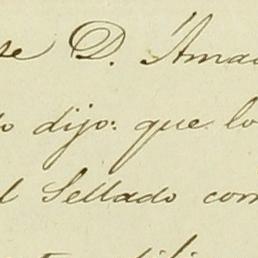 se D. Ama
o dijo: que lo
l Sellado com